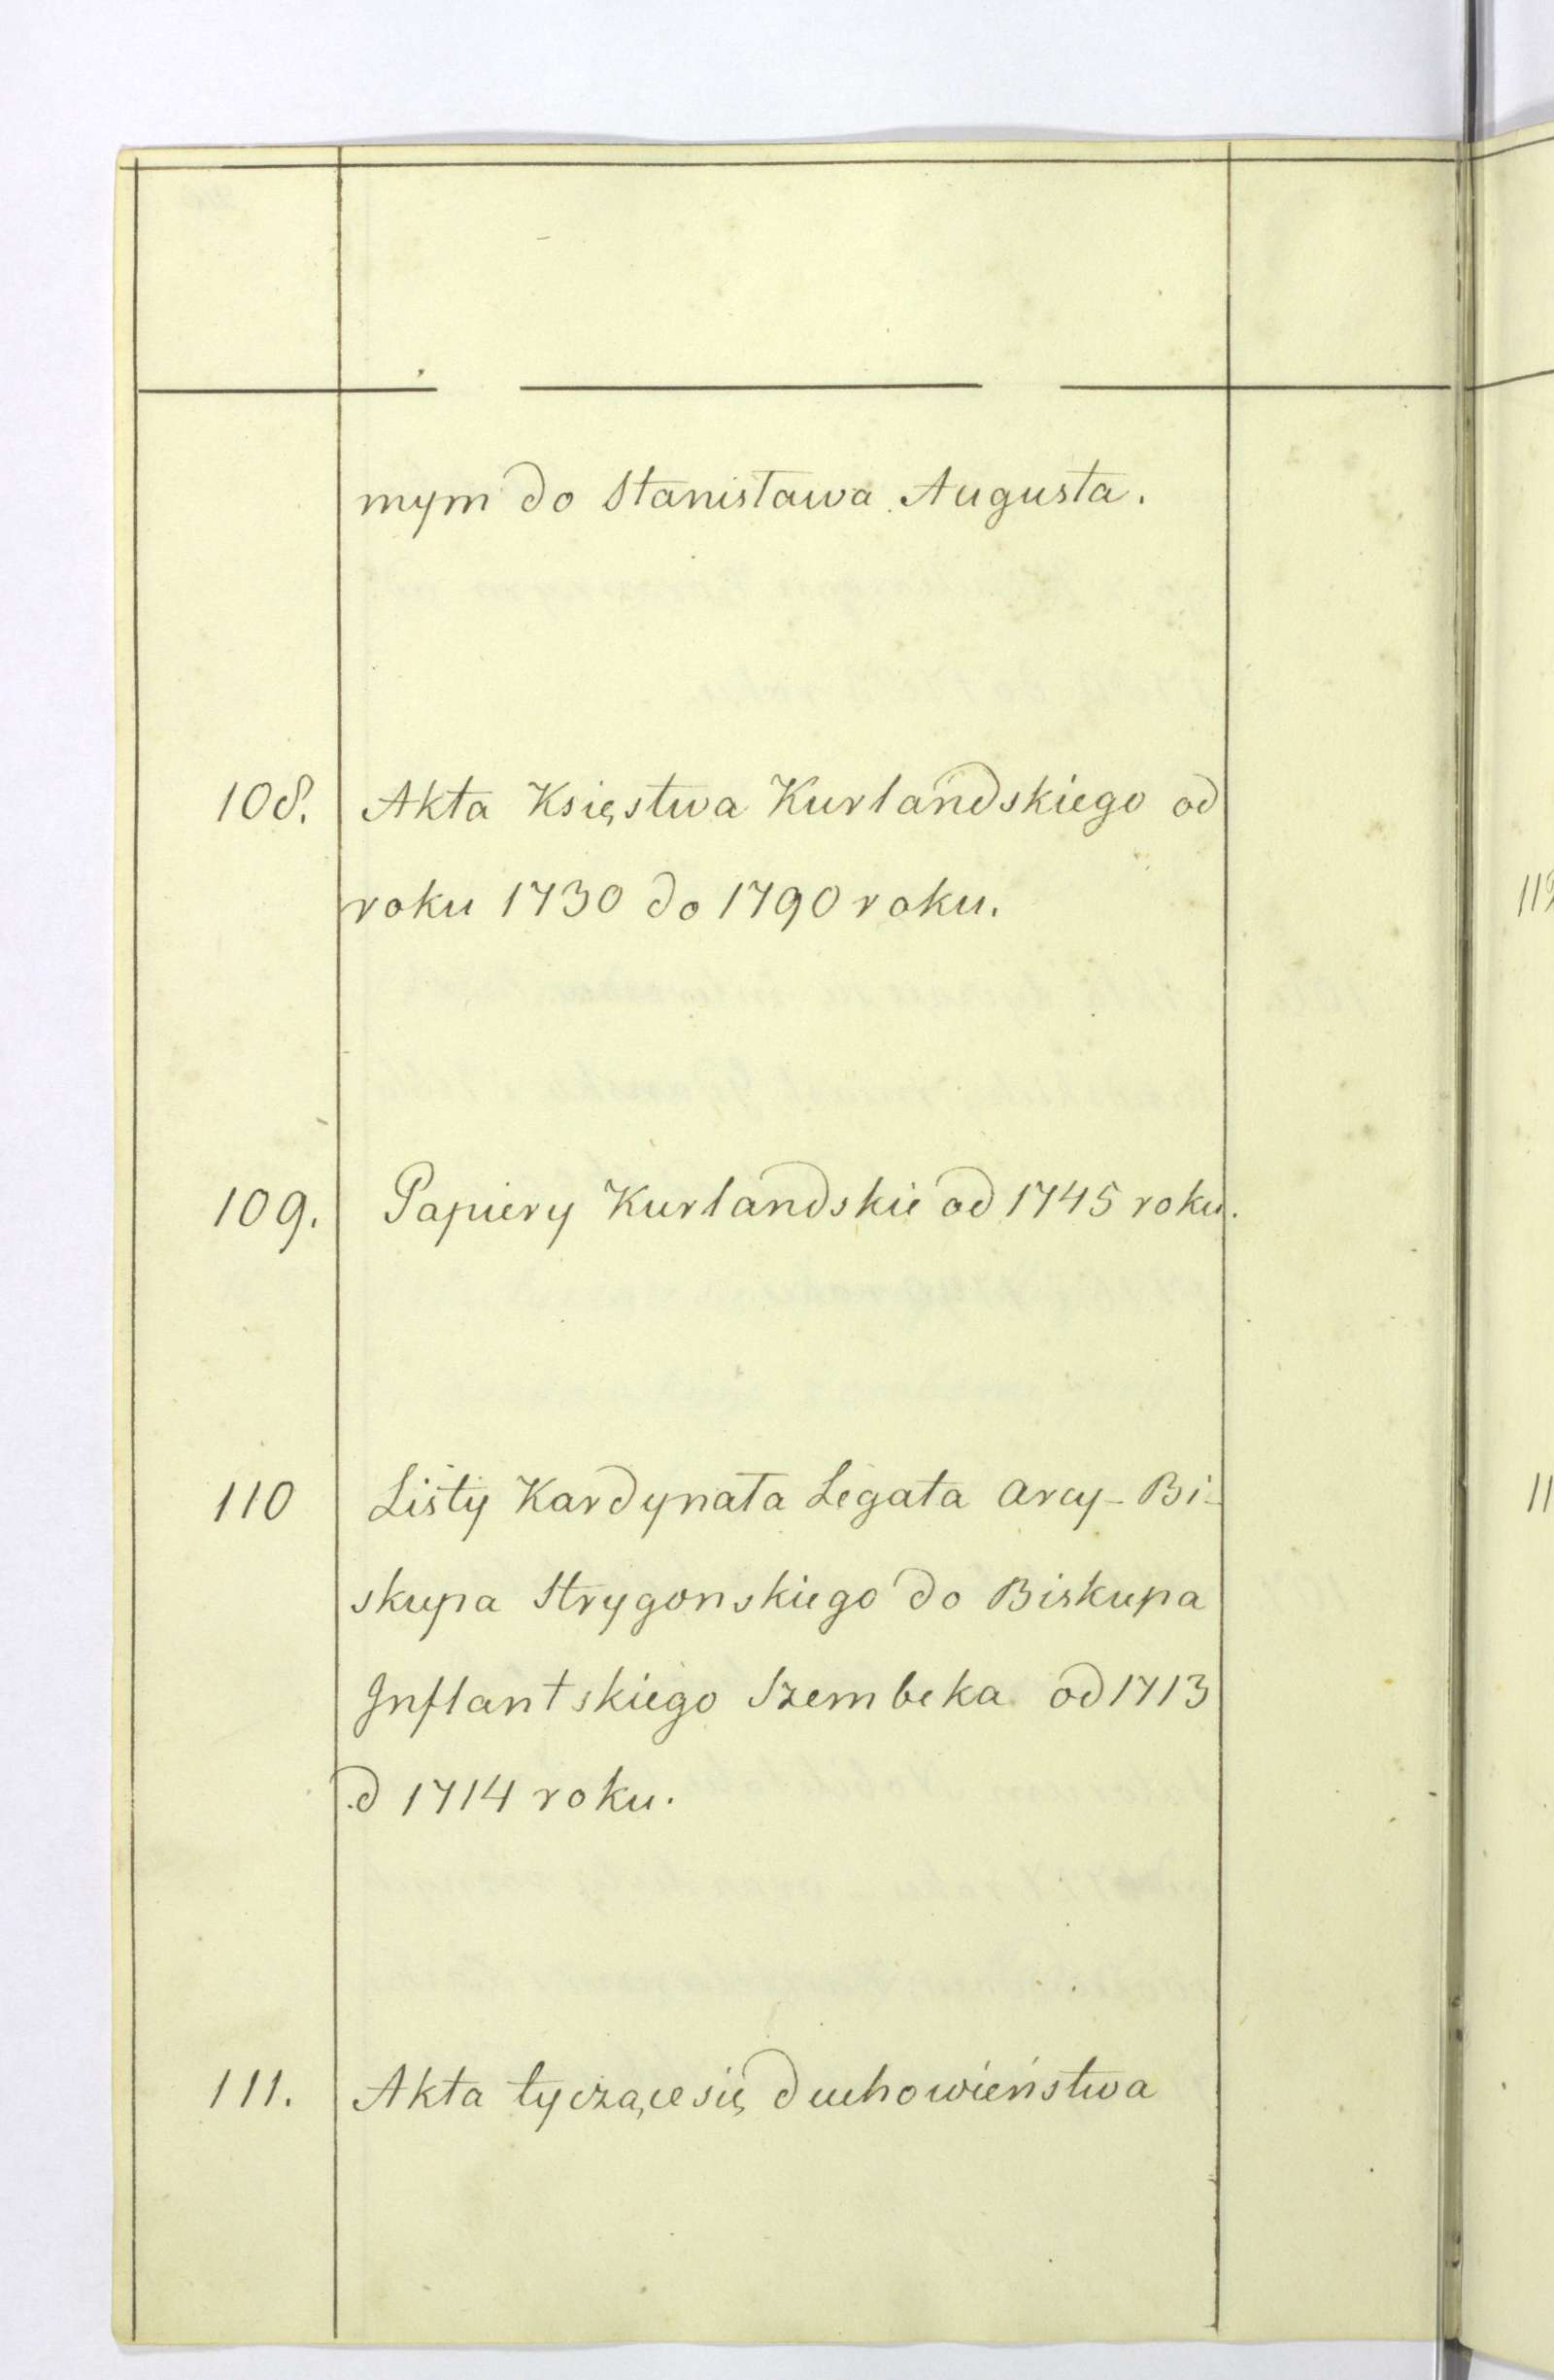 mym do Stanisława Augusta.
108. Akta Księstwa Kurlandskiego od
roku 1730 do 1790 roku.
109. Papiery Kurlandskie od 1745 roku.
110 Listy Kardynała Legata Arcy-Bi-
skupa Strygonskiego do Biskupa
Inflantskiego Szembeka od 1713
d 1714 roku.
111. Akta tyczące się duchowieństwa
11